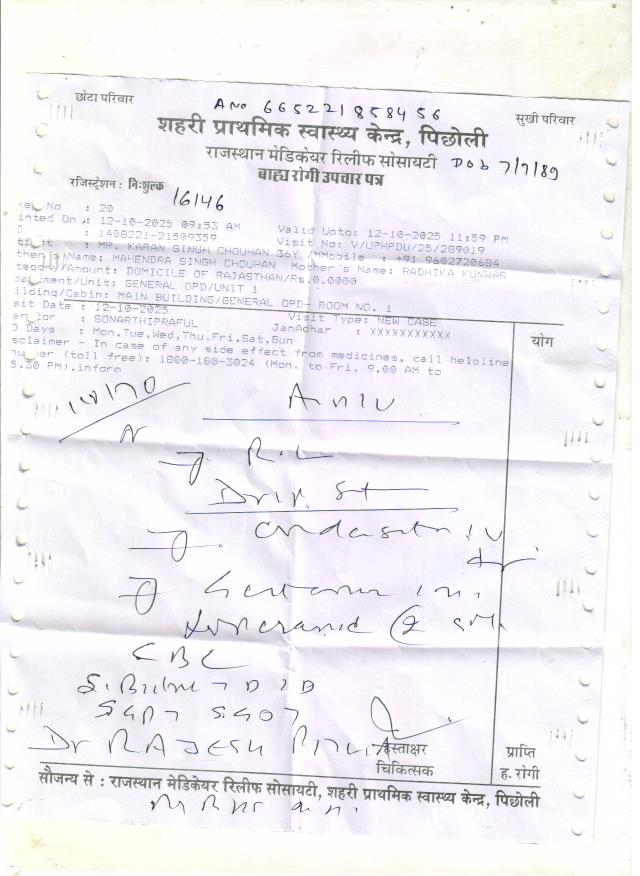 छोटा परिवार
A No 665221858456
सुखी परिवार
शहरी प्राथमिक स्वास्थ्य केन्द्र, पिछोली
राजस्थान मेडिकेयर रिलीफ सोसायटी DOB 7/7/89
बाह्य रोगी उपचार पत्र
रजिस्ट्रेशन : निःशुल्क
16146
No : 20
inted On : 12-10-2025 09:53 AM Valid Upto: 12-10-2025 11:59 PM
: 1408221-21509359 Visit No: V/UPHPDU/25/289019
: MR. KARAN SINGH CHOUHAN 36Y /MMobile : +91 9602720684
ther's Name: MAHENDRA SINGH CHOUHAN Mother's Name: RADHIKA KUNWAR
tegory/Amount: DOMICILE OF RAJASTHAN/Rs.0.0000
partment/Unit: GENERAL OPD/UNIT 1
ilding/Cabin: MAIN BUILDING/GENERAL OPD- ROOM NO. 1
sit Date : 12-10-2025 Visit Type: NEW CASE
: SONARTHIPRAFUL JanAdhar : XXXXXXXXXXX
Days : Mon,Tue,Wed,Thu,Fri,Sat,Sun
sclaimer - In case of any side effect from medicines, call helpline
(toll free): 1800-180-3024 (Mon. to Fri. 9.00 AM to
5.30 PM).inform
योग
R.L
Drip. St
CBC
S. D I D
SGPT SGOT
Dr RAJESH
हस्ताक्षर
चिकित्सक
प्राप्ति
ह. रोगी
सौजन्य से : राजस्थान मेडिकेयर रिलीफ सोसायटी, शहरी प्राथमिक स्वास्थ्य केन्द्र, पिछोली